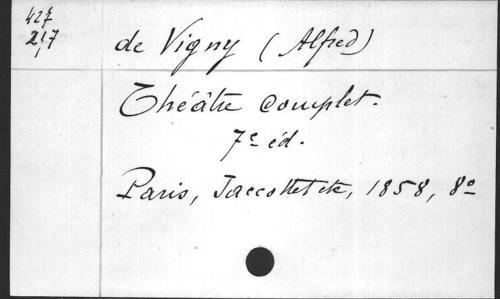 427
217
de Vigny (Alfred)
Théâtre complet.
7e éd.
Paris, Jaccottet, 1858, 8o